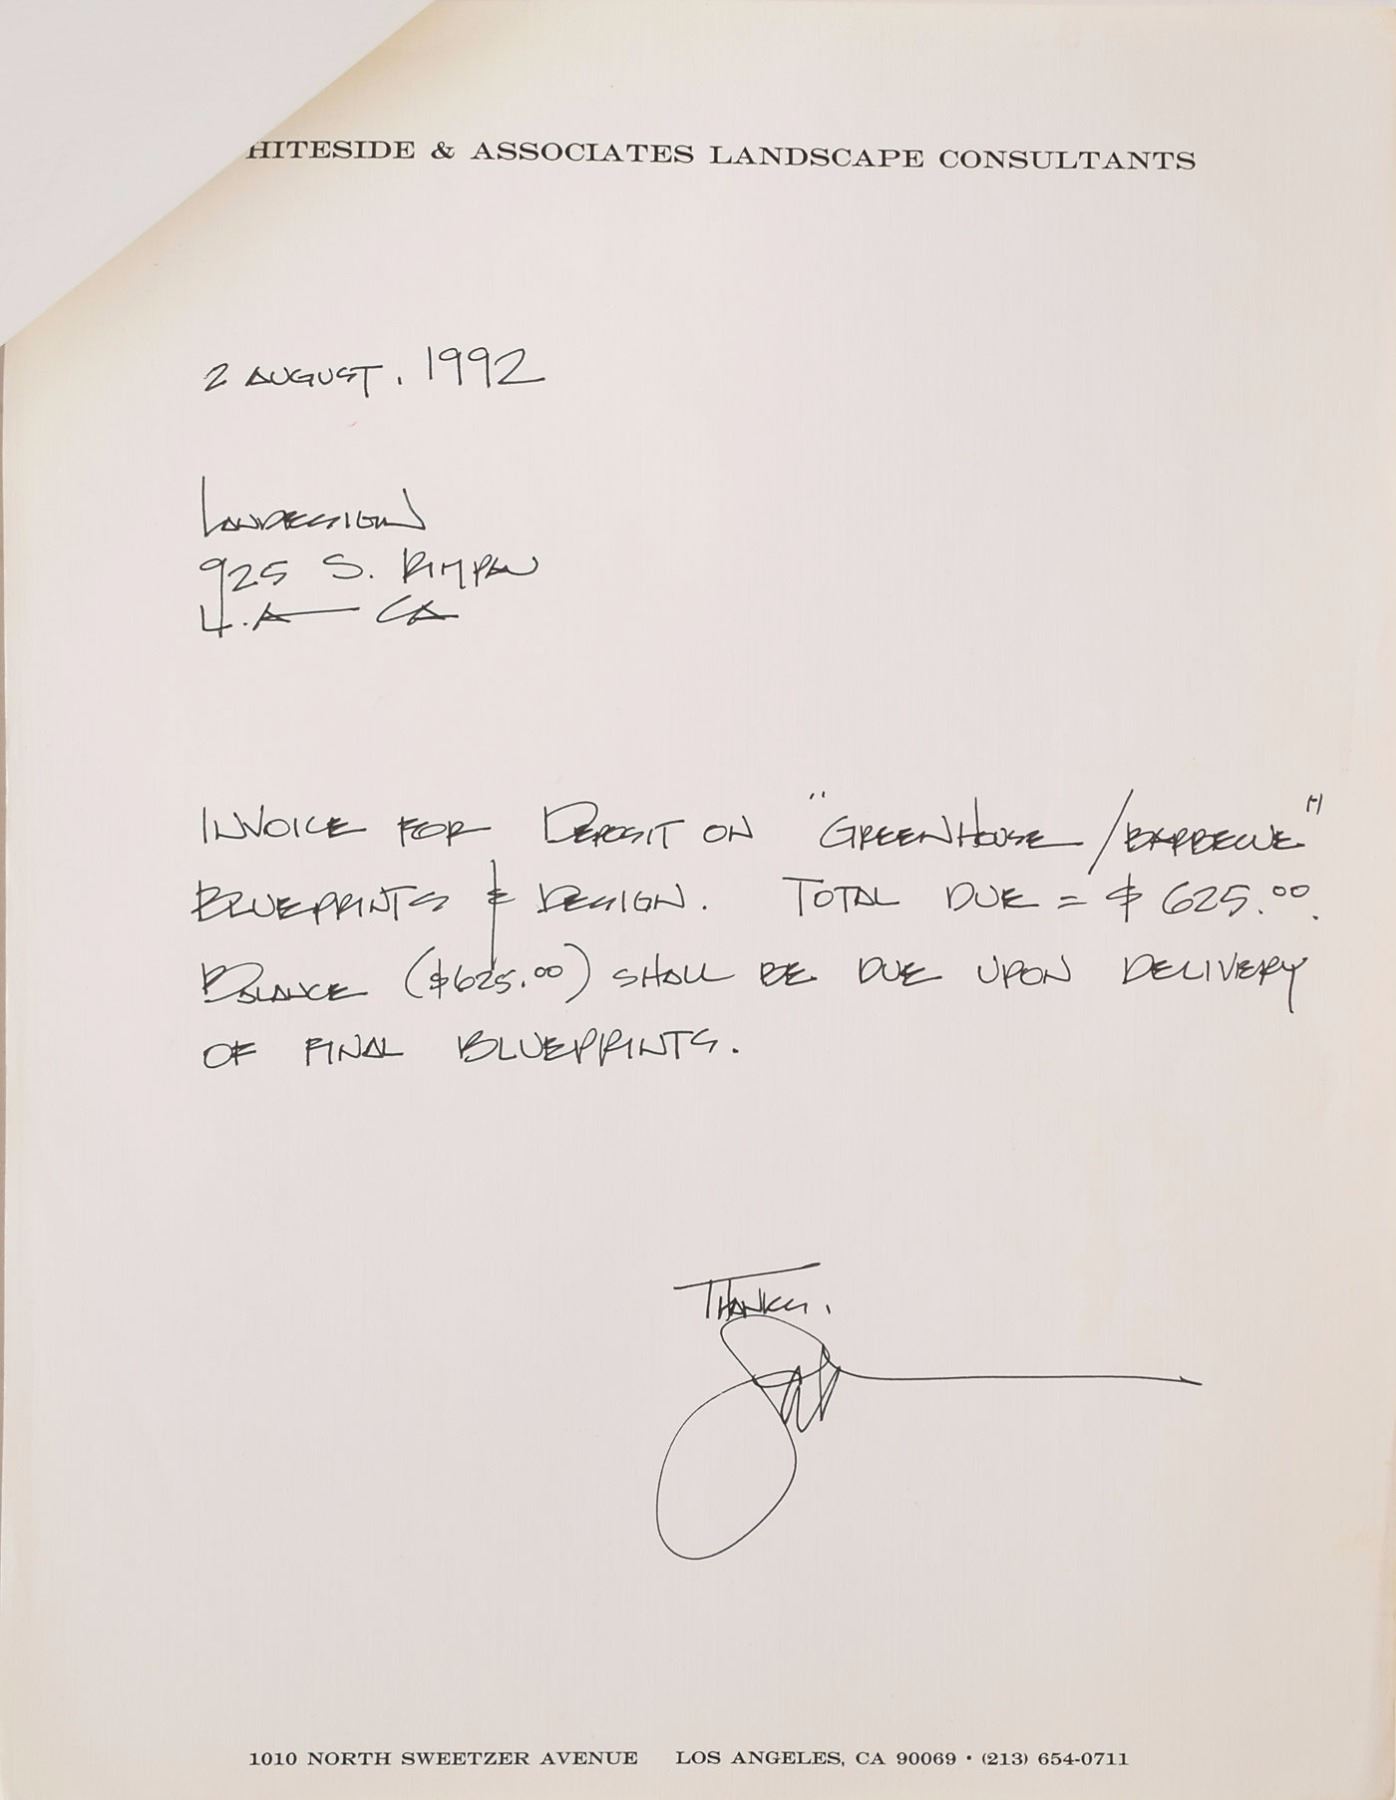 HITESIDE & ASSOCIATES LANDSCAPE CONSULTANTS
2 AUGUST. 1992
LANDESIGN
925 S. RIMPAU
L.A. CA
INVOICE FOR DEPOSIT ON "GREENHOUSE / BARBECUE"
BLUEPRINTS & DESIGN. TOTAL DUE = $ 625.00.
BALANCE ($625.00) SHALL BE DUE UPON DELIVERY
OF FINAL BLUEPRINTS.
THANKS.
1010 NORTH SWEETZER AVENUE LOS ANGELES, CA 90069 • (213) 654-0711